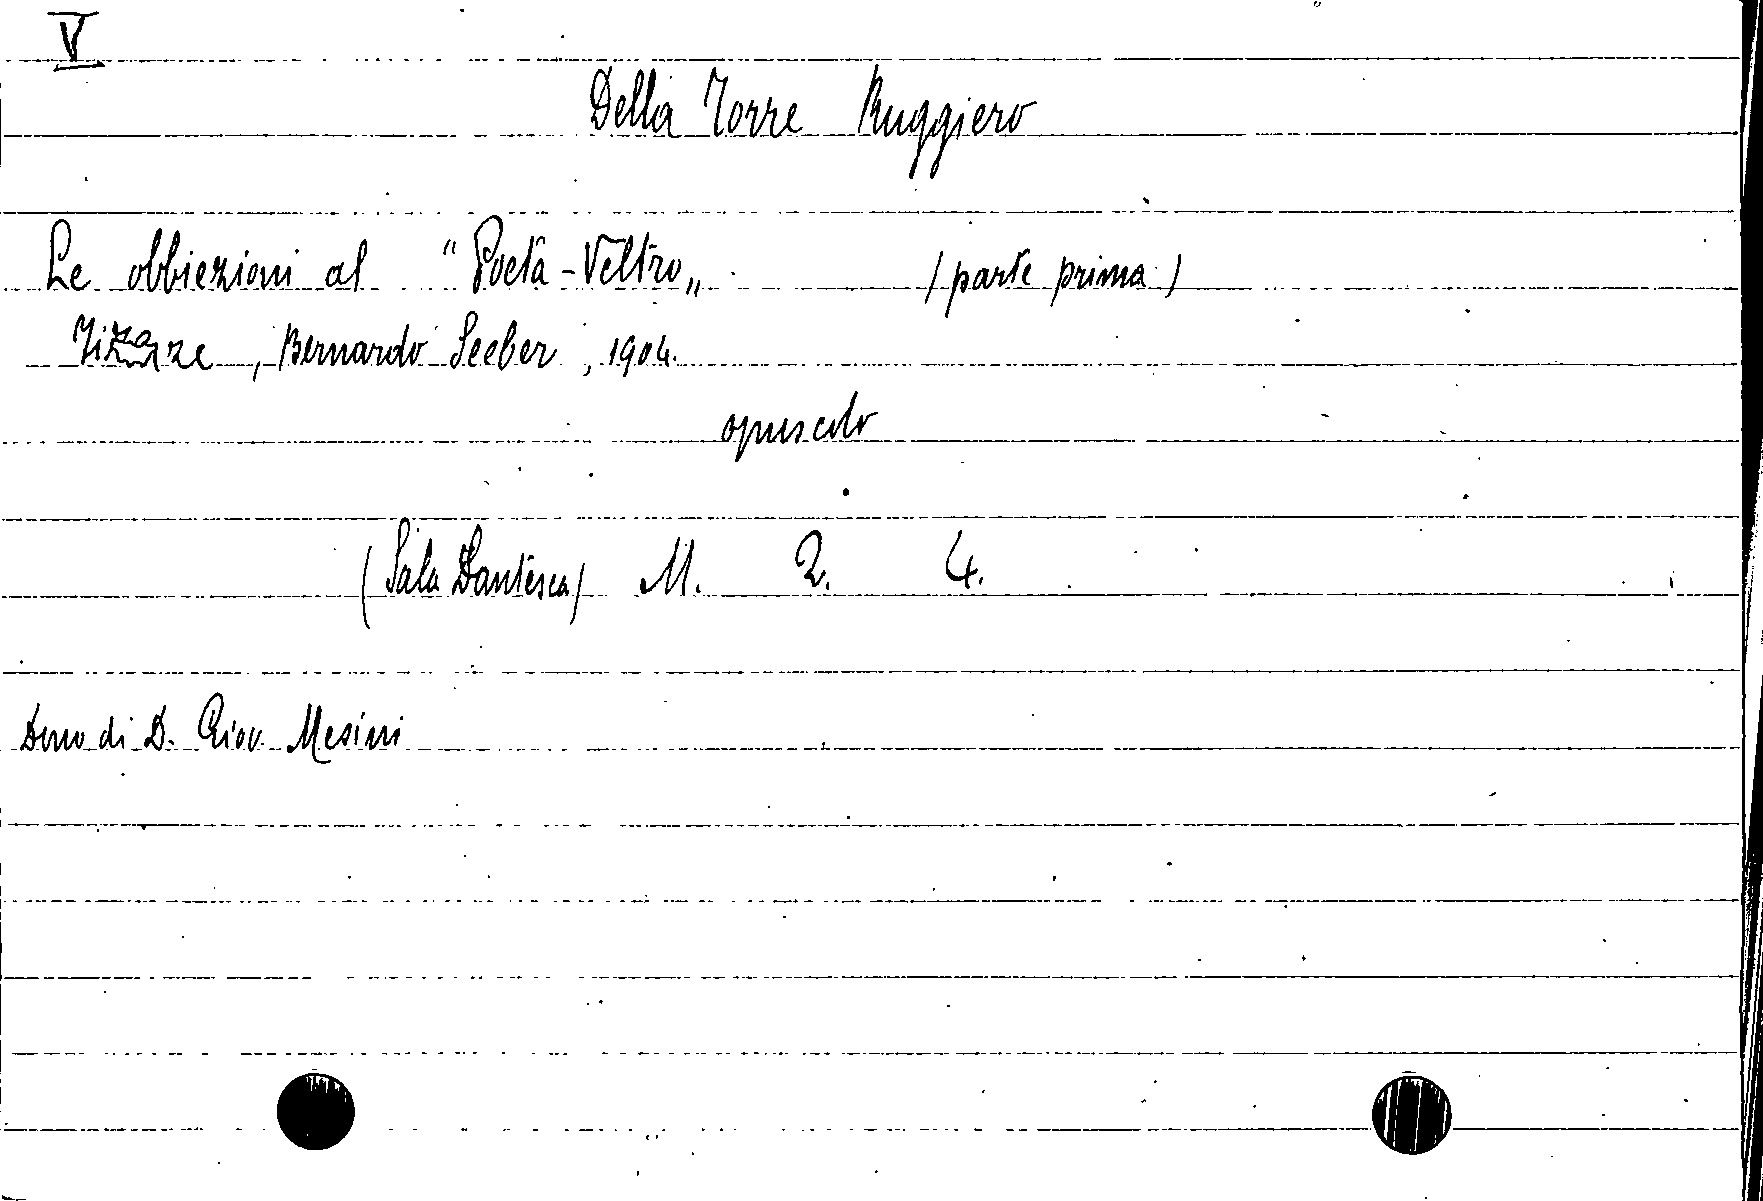 V
Della Torre Ruggiero
Le obbiezioni al "Poeta-Veltro„ (parte prima)
Firenze, Bernardo Seeber, 1904.
opuscolo
(Sala Dantesca) M. 2. 4.
Dono di D. Giov. Mesini